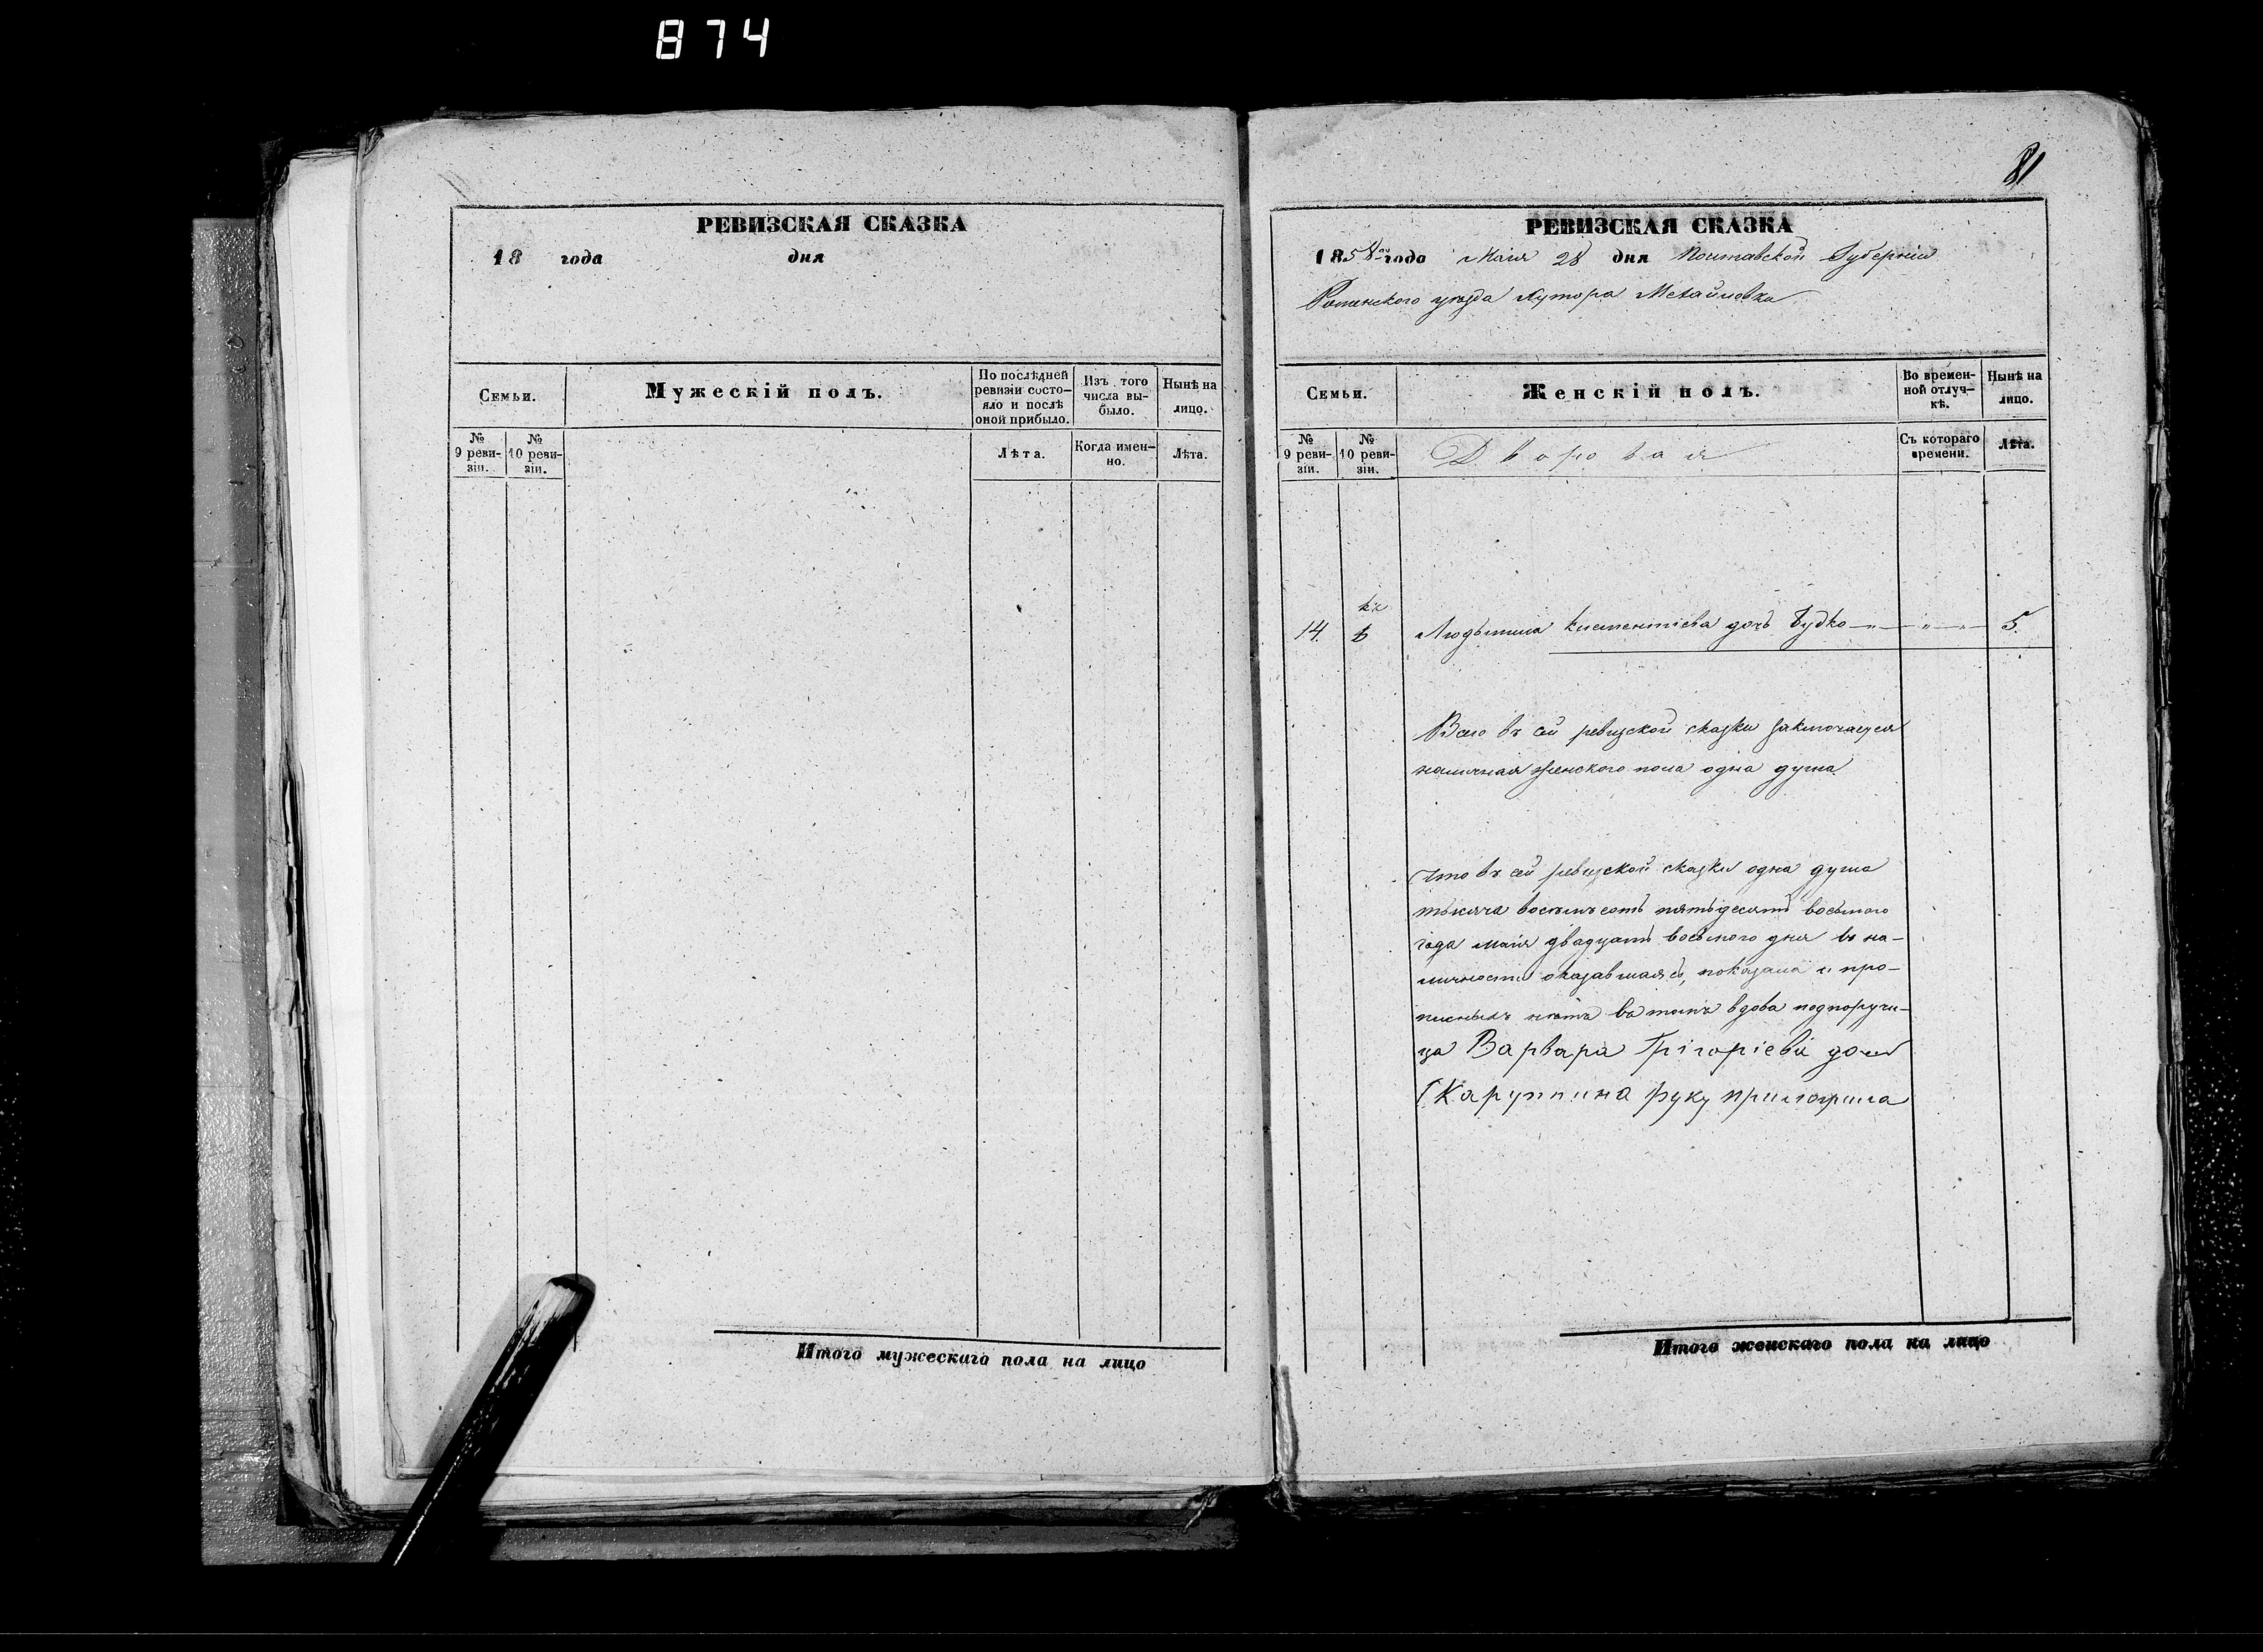 874
РЕВИЗСКАЯ СКАЗКА
18 года дня
Семьи.
Мужескій полъ.
По послѣдней ревизіи состо- яло и послѣ оной прибыло.
Изъ того числа вы- было.
Нынѣ на лицо.
№ 9 реви- зіи.
№ 10 реви- зіи.
Лѣта.
Когда имен- но.
Лѣта.
Итого мужескаго пола на лицо
81
РЕВИЗСКАЯ СКАЗКА
1858го года Маія 28 дня Полтавской Губерніи
Роменского уезда Хутора Михайловки
Семьи.
Женскій полъ.
Во времен- ной отлуч- кѣ.
Нынѣ на лицо.
№ 9 реви- зіи.
№ 10 реви- зіи.
Дворовая
Съ котораго времени.
Лѣта.
14. Людьмила Клементіева дочь Будко 5.
Всего въ сей ревизской сказки заключается
наличная женского пола одна душа
Что въ сей ревизской сказки одна душа
тысяча восемьсотъ пятьдесятъ восьмого
года маія двадцать восьмого дня въ на-
личности оказавшаясь, показана и про-
писныхъ нѣтъ въ томъ вдова подпоручи-
ца Варвара Грігоріева дочь
руку приложила